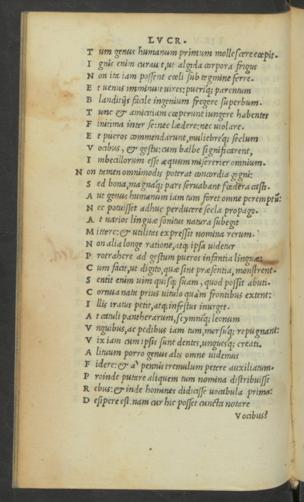 LVCR.
T um genus humanum primum mollescere cœpit.
I gnis enim curauit, ut algida corpora frigus
N on ita iam possent cœli sub tegmine ferre.
E t uenus imminuit uires; pueriq; parentum
B landitijs facile ingenium fregere superbum.
T unc & amicitiam cœperunt iungere habentes
F initima inter se; nec lædere; nec uiolare.
E t pueros commendarunt, muliebreq; seclum
V ocibus, & gestu; cum balbe significarent,
I mbecillorum esse æquum misererier omnium.
N on tamen omnimodis poterat concordia gigni:
S ed bona, magnaq; pars seruabant fœdera casti.
A ut genus humanum iam tum foret omne peremptum:
N ec potuisset adhuc perducere secla propago.
A t uarios linguæ sonitus natura subegit
M ittere; & utilitas expressit nomina rerum.
N on alia longe ratione, atq; ipsa uidetur
P rotrahere ad gestum pueros infantia linguæ:
C um facit, ut digito, quæ sint præsentia, monstrent.
S entit enim uim quisq; suam, quod possit abuti.
C ornua nata prius uitulo quàm frontibus extent:
I llis iratus petit, atq; infestus inurget.
A t catuli pantherarum, scymniq; leonum
V nguibus, ac pedibus iam tum, morsuq; repugnant:
V ix iam cum ipsis sunt dentes, unguesq; creati.
A lituum porro genus alis omne uidemus
F idere; & à pennis tremulum petere auxiliatum.
P roinde putare aliquem tum nomina distribuisse
R ebus; & inde homines didicisse uocabula prima:
D esipere est. nam cur hic posset cuncta notare
Vocibus?